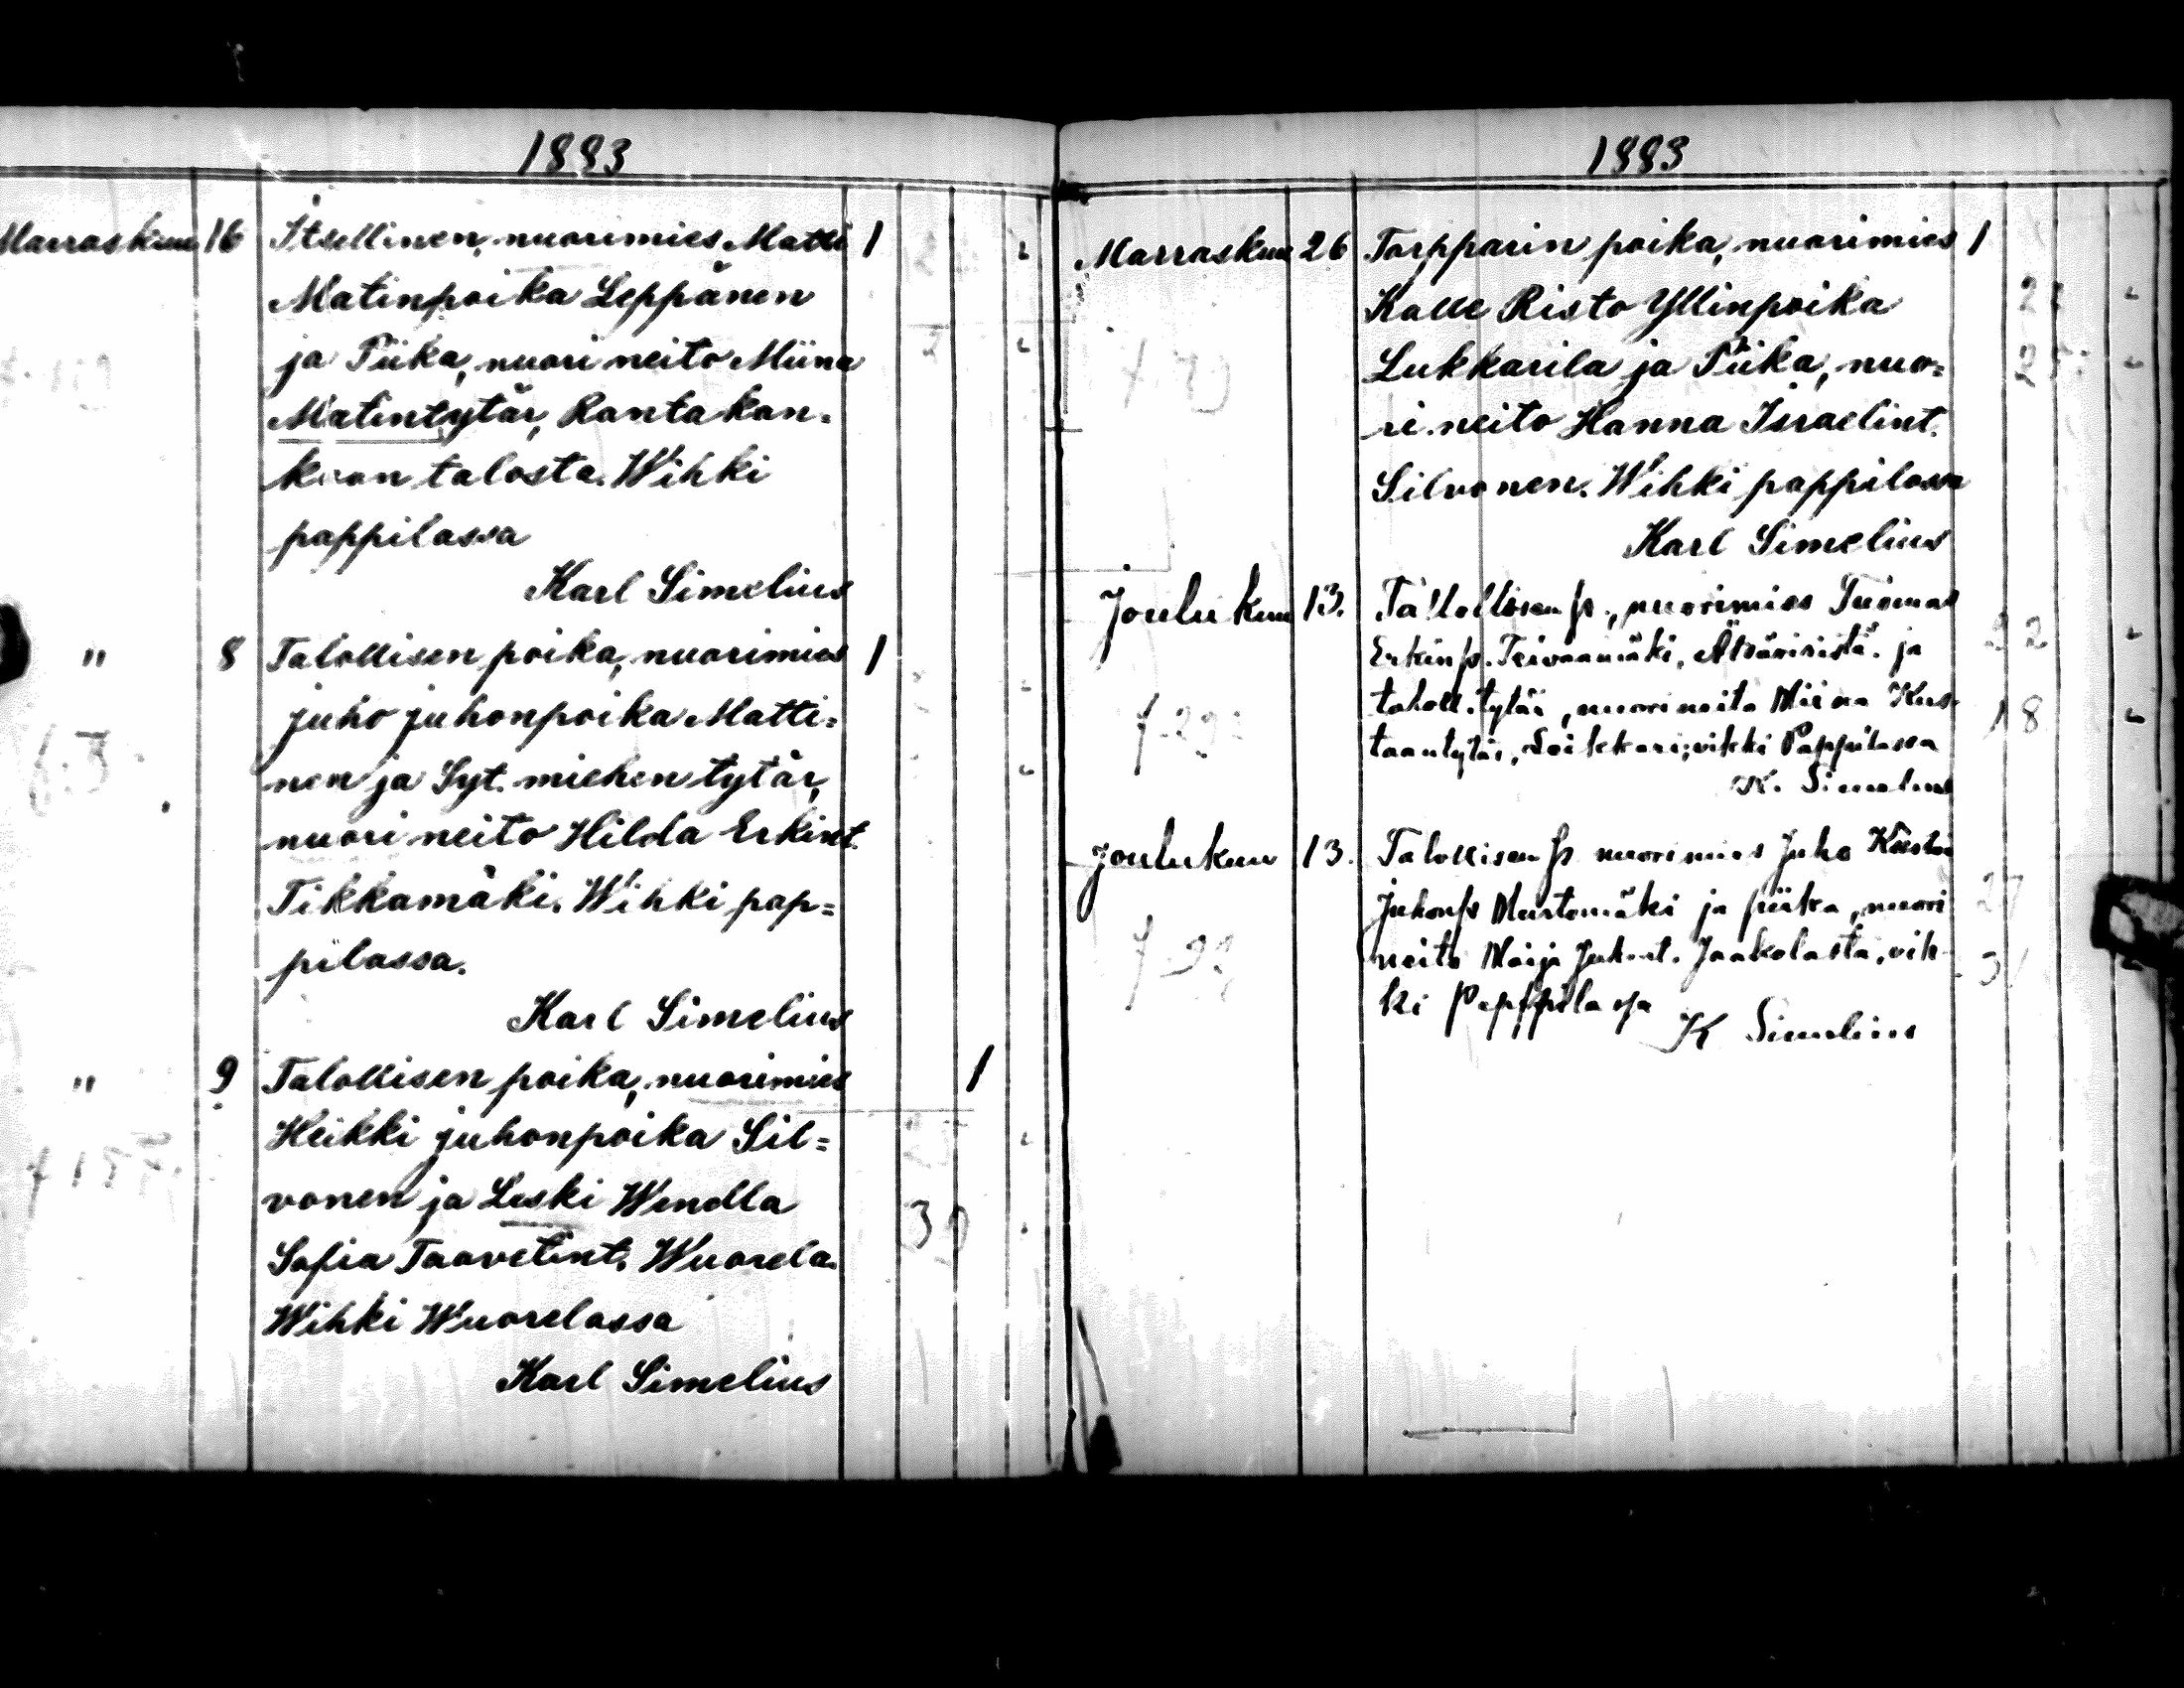 1883
Marraskuu 16 Itsellinen, nuorimies Matti 1
Matinpoika Leppänen
ja Piika, nuori neito Miina
Matintytär, Rantakan-
kaan talosta. Wihki
pappilassa
Karl Simelius
" 8 Talollisen poika, nuorimies 1
Juho Juhonpoika Matti=
nen ja Syt. miehen tytär,
nuori neito Hilda Erkint.
Tikkamäki. Wihki pap=
pilassa.
Karl Simelius
" 9 Talollisen poika, nuorimies 1
Heikki Juhonpoika Sil=
vonen ja Leski Wendla
Sofia Taavetint. Wuorela.
39
Wihki Wuorelassa
Karl Simelius
1883
Marraskuu 26 Torpparin poika, nuorimies 1
Kalle Risto Yllinpoika
Lukkarila ja Piika, nuo=
ri neito Hanna Israelint.
Silvonen. Wihki pappilassa
Karl Simelius
Joulukuu 13. Talollisen p., nuorimies Tuomas
Erkinp. Teivaamäki, Ätsäristä. ja 22
taloll. tytär, nuori neito Miina Kus- 18
taantytär, Soikkari; vihki Pappilassa
K. Simelius
Joulukuu 13. Talollisen p nuorimies Juho Kustaa
Juhonp Mustamäki ja piika, nuori 27
neito Maija Juh..t. Jaakolasta, vih-
ki Pappilassa
K Simelius